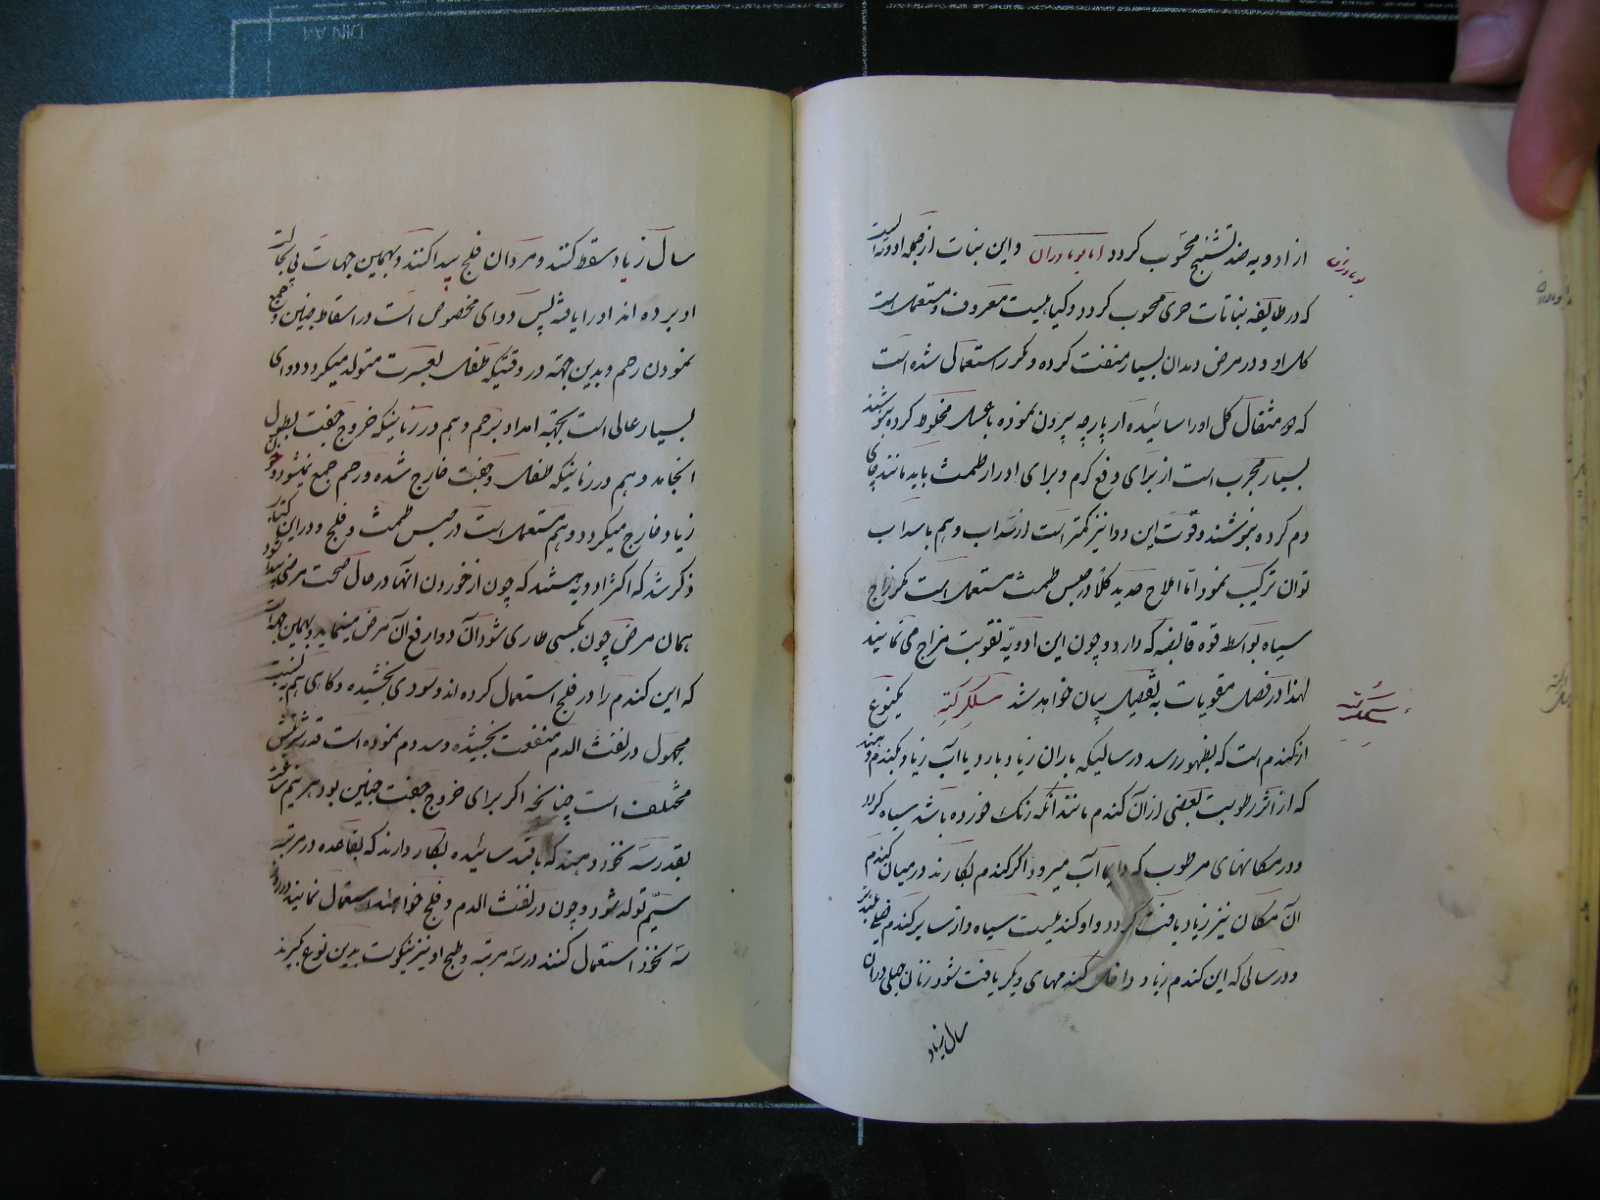 از ادویه ضد تشنج محسوب گردد اما بومادران و این نبات از جمله ادویه ایست
بومادران
که در طایفه نباتات حری محسوب گردد و گیاهیست معروف و مستعمل است
گل او و در مرض دیدان بسیار منفعت کرده و مکرر استعمال شده است
که دو مثقال گل او را سائیده از پارچه بیرون نموده با عسل مخلوط کرده بنوشند
بسیار مجرب است از برای دفع کرم و برای ادرار طمث باید مانند چای
دم کرده بنوشند و قوت این دوا نیز کمتر است از سداب و هم با سداب
توان ترکیب نمود اما املاح حدید کلا در حبس طمث مستعمل است مگر زاج
سیاه بواسطه قوه قابضه که دارد و چون این ادویه تقویت مزاج می نمایند
لهذا در فصل مقویات به تفصیل بیان خواهد شد سکل کرنه یکنوع
سکل کرنه
از گندم است که بظهور رسد در سالیکه باران زیاد بارد یا آب زیاد بگندم دهند
که از اثر رطوبت بعضی از آن گندم مانند آنکه زنک خورده باشد سیاه گردد
و در مکانهای مرطوب که دایما آب میرود اگر گندم بکارند در میان گندم
آن مکان نیز زیاد یافت گردد و او گندمیست سیاه و از سایر گندم بلندتر
و در سالی که این گندم زیاد داخل گندمهای دیگر یافت شود زنان حبلی در آن
سال زیاد
سال زیاد سقط کنند و مردان فلج پیدا کنند و بهمین جهات پی بحالت
او برده اند او را یافته پس دوای مخصوص است در اسقاط جنین و جمع
نمودن رحم و بدین جهة در وقتیکه طفل بعسرت متولد میگردد دوای
بسیار عالی است بجهة امداد بر رحم و هم در زمانیکه خروج جفت بطول
انجامد و هم در زمانیکه طفل و جفت خارج شده و رحم جمع نمیشود و خون
زیاد خارج میگردد و هم مستعمل است در حبس طمث و فلج و در این کتاب
ذکر شد که اکثر ادویه هستند که چون از خوردن آنها در حال صحت مرضی پیدا شود
همان مرض چون بکسی طاری شود آن دوا رفع آن مرض مینماید و بهمین جهة است
که این گندم را در فلج استعمال کرده اند و سودی بخشیده و گاهی هم به نسبت
مجهول در نفث الدم منفعت بخشیده و سد دم نموده است قدر شربتش
مختلف است چنانچه اگر برای خروج جفت جنین بود هر نیم ساعت
بقدر سه نخود دهند که با قند سائیده بکار دارند که بقاعده در مرتبه
سیم تولد شود و چون در نفث الدم و فلج خواهند استعمال نمایند در روز
سه نخود استعمال کنند در سه مرتبه و طبخ او نیز نیکوست بدین نوع بگیرند